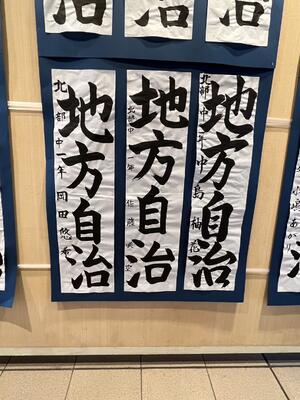 治
治
治
地方自治
北部中一年 中島柚
地方自治
北部中 一年 佐藤
地方自治
北部中一年 岡田悠希
治
あかり